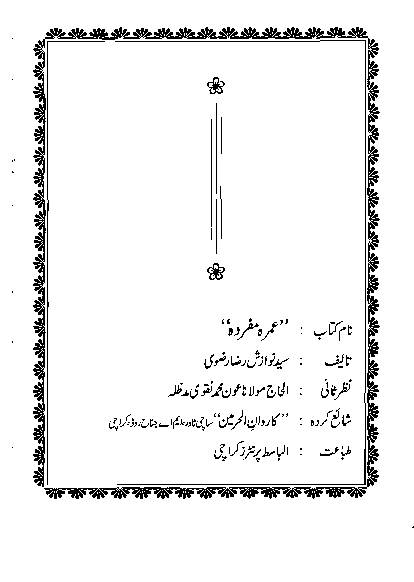 نام کتاب : ”عمرہ مفردہ“
تالیف : سید نوازش رضا رضوی
نظر ثانی : الحاج مولانا عون محمد نقوی مدظلہ
شائع کردہ : ”کاروان الحرمین“ ساجی ٹاور، ایم اے جناح روڈ، کراچی
طباعت : الباسط پرنٹرز کراچی